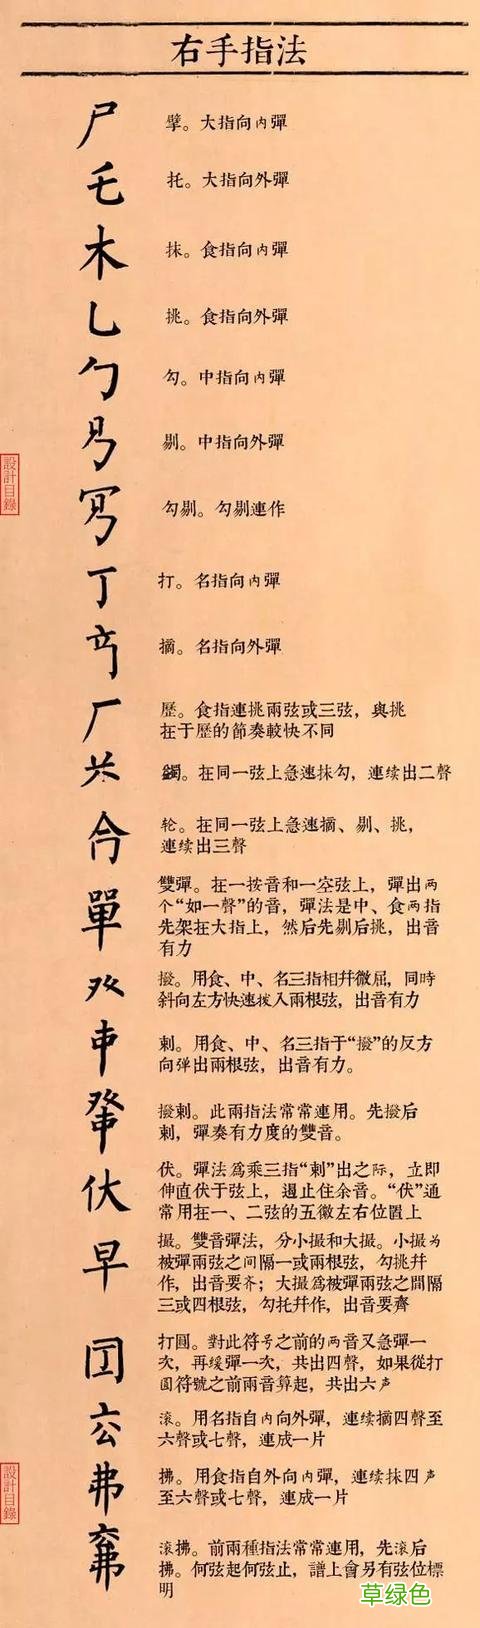 右手指法
尸 擘。大指向内彈
乇 托。大指向外彈
木 抹。食指向内彈
乚 挑。食指向外彈
勹 勾。中指向内彈
剔。中指向外彈
勾剔。勾剔連作
丁 打。名指向内彈
摘。名指向外彈
厂 歷。食指連挑兩弦或三弦，與挑
在于歷的節奏較快不同
在同一弦上急速抹勾，連续出二聲
轮。在同一弦上急速摘、剔、挑，
連续出三聲
單 雙彈。在一按音和一空弦上，彈出两
个“如一聲”的音，彈法是中、食两指
先架在大指上，然后先剔后挑，出音
有力
撥。用食、中、名三指相幷微屈，同時
斜向左方快速拨入兩根弦，出音有力
剌。用食、中、名三指于“撥”的反方
向弹出兩根弦，出音有力。
撥剌。此兩指法常常連用。先撥后
剌，彈奏有力度的雙音。
伏 伏。彈法爲乘三指“剌”出之际，立即
伸直伏于弦上，遏止住余音。“伏”通
常用在一、二弦的五徽左右位置上
早 撮。雙音彈法，分小撮和大撮。小撮为
被彈兩弦之间隔一或兩根弦，勾挑幷
作，出音要齐；大撮爲被彈兩弦之間隔
三或四根弦，勾托幷作，出音要齊
打圓。對此符号之前的两音又急彈一
次，再缓彈一次，共出四聲，如果從打
圓符號之前兩音算起，共出六声
滚。用名指自内向外彈，連续摘四聲至
六聲或七聲，連成一片
弗 拂。用食指自外向内彈，連续抹四声
至六聲或七聲，連成一片
滚拂。前兩種指法常常連用，先滚后
拂。何弦起何弦止，譜上會另有弦位標
明
設計目錄
設計目錄
草绿色